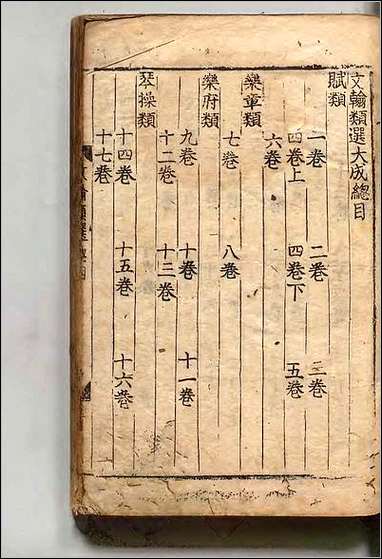 文翰類選大成總目
賦類
一卷 二卷 三卷
四卷上 四卷下 五卷
六卷
樂章類
七卷 八卷
樂府類
九卷 十卷 十一卷
十二卷 十三卷
琴操類
十四卷 十五卷 十六卷
十七卷